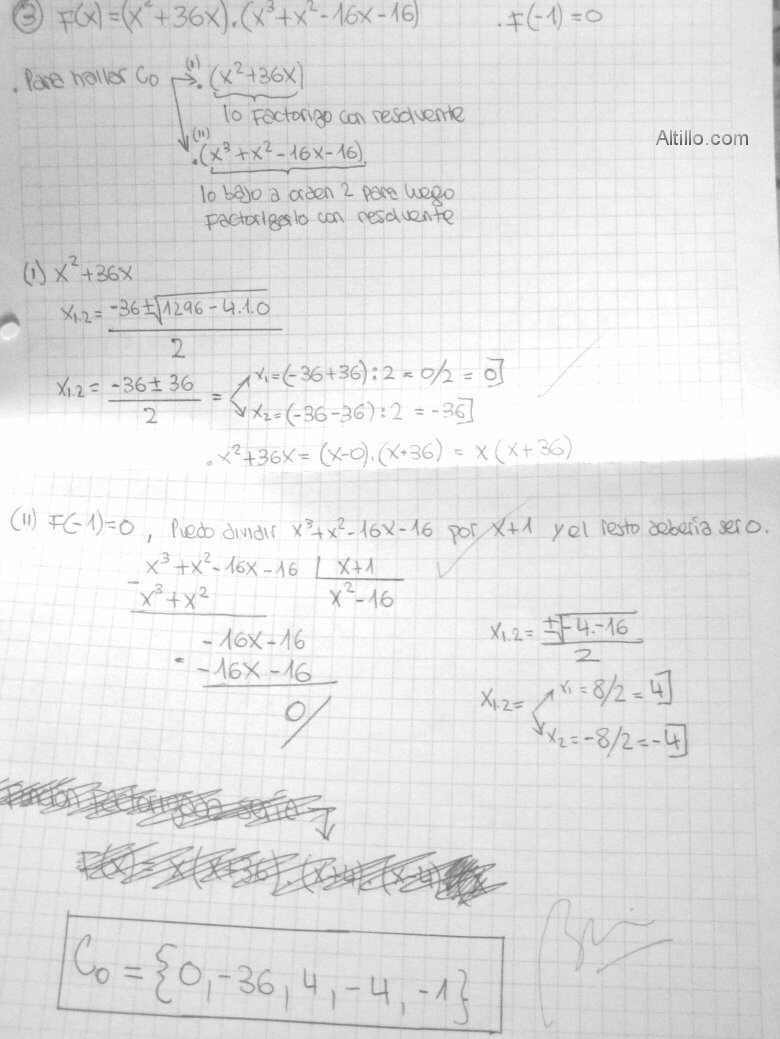 ③ F(x)=(x²+36x).(x³+x²-16x-16) . F(-1)=0
. Para hallar C₀ (I) . (x²+36x)
lo Factorizo con resolvente
Altillo.com
(II) .(x³+x²-16x-16)
lo bajo a orden 2 para luego
Factorizarlo con resolvente
(I) x²+36x
x₁.₂= -36±√1296-4.1.0 / 2
x₁.₂= -36±36 / 2 = x₁=(-36+36):2=0/2=0
x₂=(-36-36):2=-36
. x²+36x=(x-0).(x+36)=x(x+36)
(II) F(-1)=0, Puedo dividir x³+x²-16x-16 por x+1 y el resto debería ser 0.
x³+x²-16x-16 | x+1
- x³+x² x²-16
-16x-16
- -16x-16
0/
x₁.₂= ±√-4.-16 / 2
x₁.₂= x₁=8/2=4
x₂=-8/2=-4
F(x)= x(x+36).(x+4).(x-4)
C₀={0,-36,4,-4,-1}